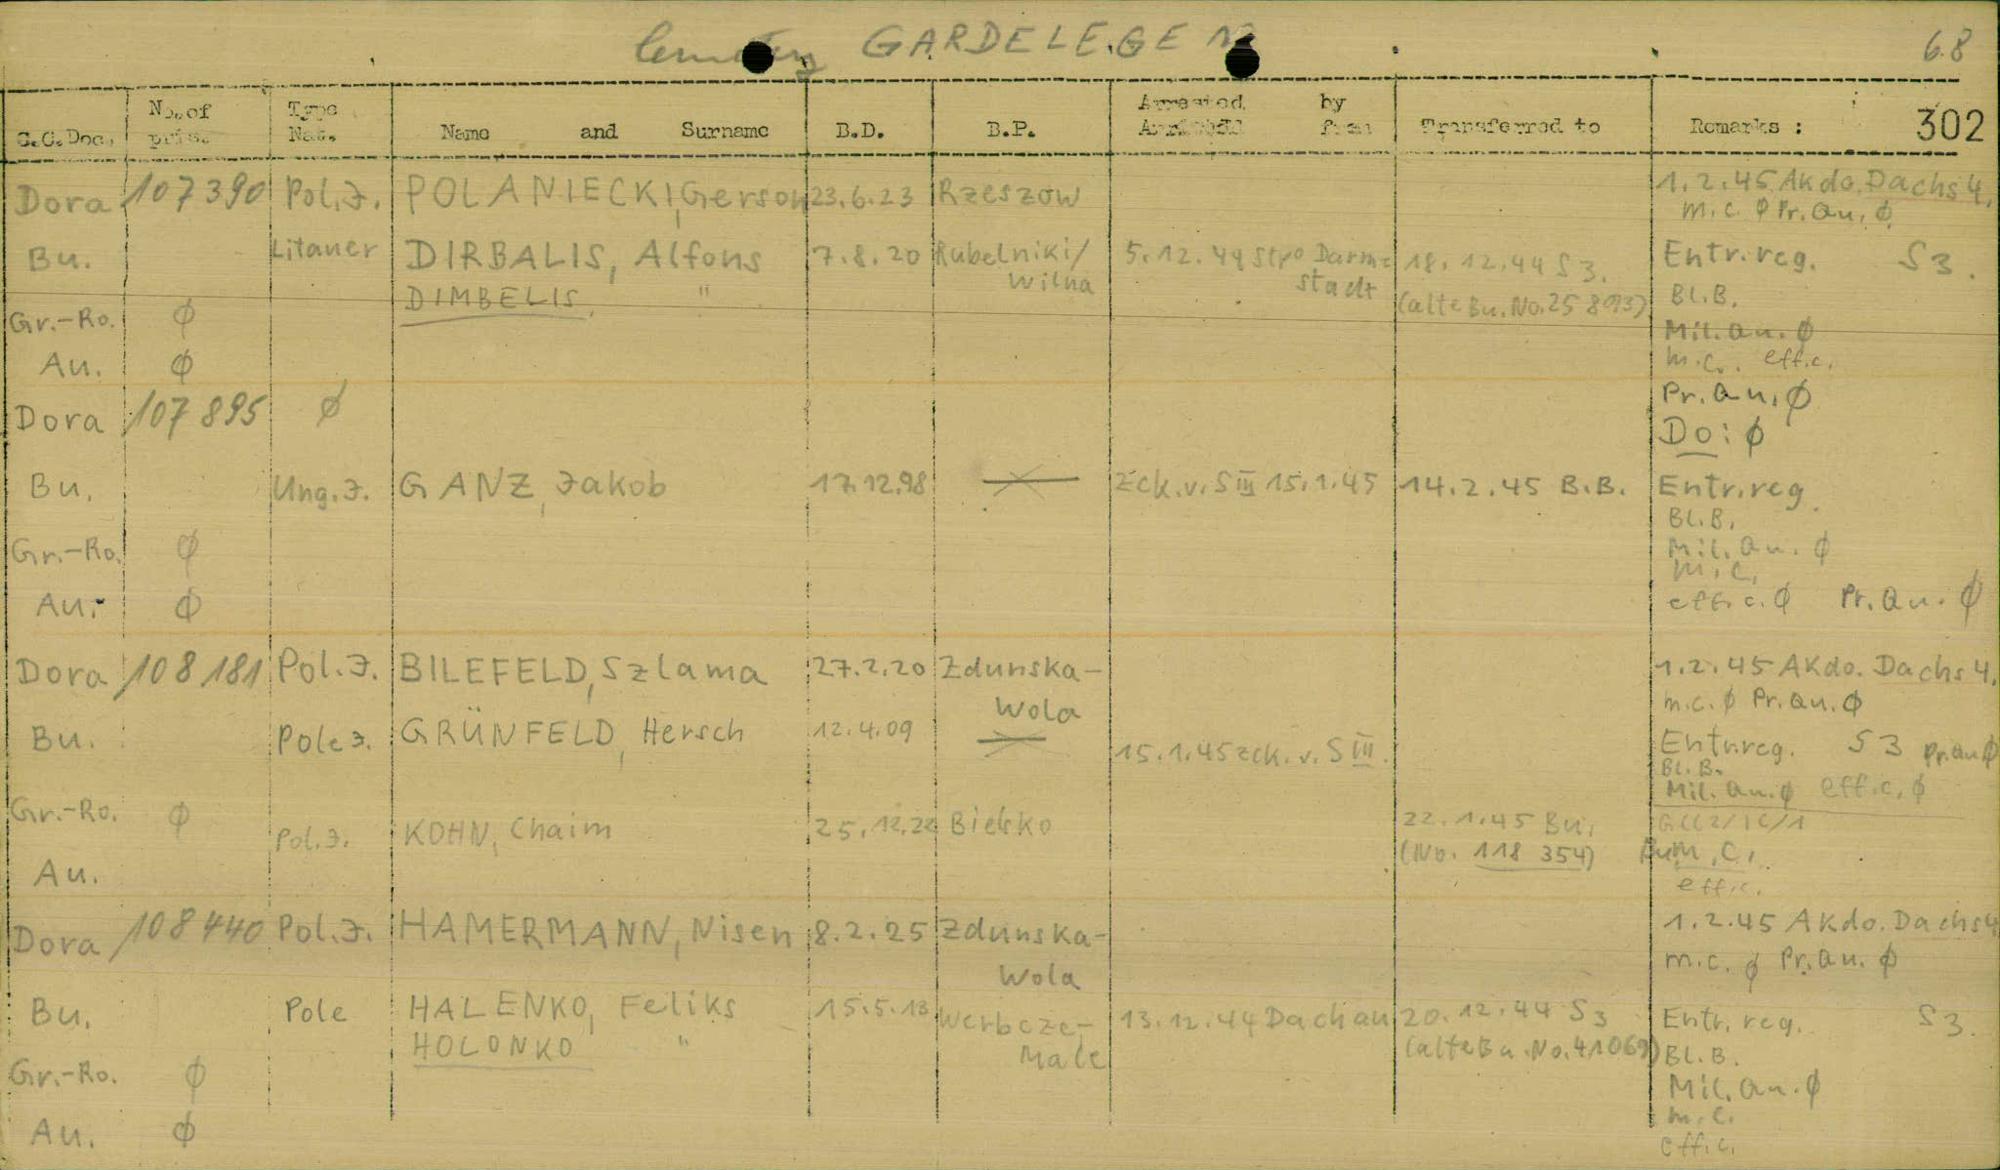 Cemetery GARDELEGEN 68
C.C.Doc. No. of pris. Type Nat. Name and Surname B.D. B.P. Arrested by Arrived from Transferred to Remarks : 302
Dora 107390 Pol.J. POLANIECKI, Gerson 23.6.23 Rzeszow 1.2.45 AKdo. Dachs 4.
m.c. ∅ Pr. Au. ∅
Bu. Litauer DIRBALIS, Alfons 7.8.20 Rubelniki/ Wilna 5.12.44 Stpo Darm= stadt 18.12.44 S3. Entr.reg. S3.
DIMBELIS, " (alte Bu. No. 25 893) Bl.B.
Gr.-Ro. ∅ Mil.au. ∅
Au. ∅ m.c. effic.
Dora 107895 ∅ Pr.au. ∅
Do: ∅
Bu. Ung.J. GANZ, Jakob 17.12.98 zck.v. S III 15.1.45 14.2.45 B.B. Entr.reg.
Bl.B.
Gr.-Ro. ∅ Mil.au. ∅
m.c.
Au. ∅ effic. ∅ Pr.au. ∅
Dora 108181 Pol.J. BILEFELD, Szlama 27.2.20 Zdunska- Wola 1.2.45 AKdo. Dachs 4.
m.c. ∅ Pr.au. ∅
Bu. Pole J. GRÜNFELD, Hersch 12.4.09 15.1.45 zck. v. S III. Entr.reg. S3 Pr.au ∅
Bl.B.
Mil.au. ∅ effic. ∅
Gr.-Ro. ∅ Pol.J. KOHN, Chaim 25.12.22 Bielsko 22.1.45 Bu. GCC2/IC/1
(No. 118 354) Bu m.c.
Au. effic.
Dora 108440 Pol.J. HAMERMANN, Nisen 8.2.25 Zdunska- Wola 1.2.45 AKdo. Dachs 4
m.c. ∅ Pr.au. ∅
Bu. Pole HALENKO, Feliks 15.5.13 Werbcze- Male 13.12.44 Dachau 20.12.44 S3 Entr.reg. S3.
HOLONKO " (alte Bu. No. 41069) Bl.B.
Gr.-Ro. ∅ Mil.au. ∅
m.c.
Au. ∅ effic.